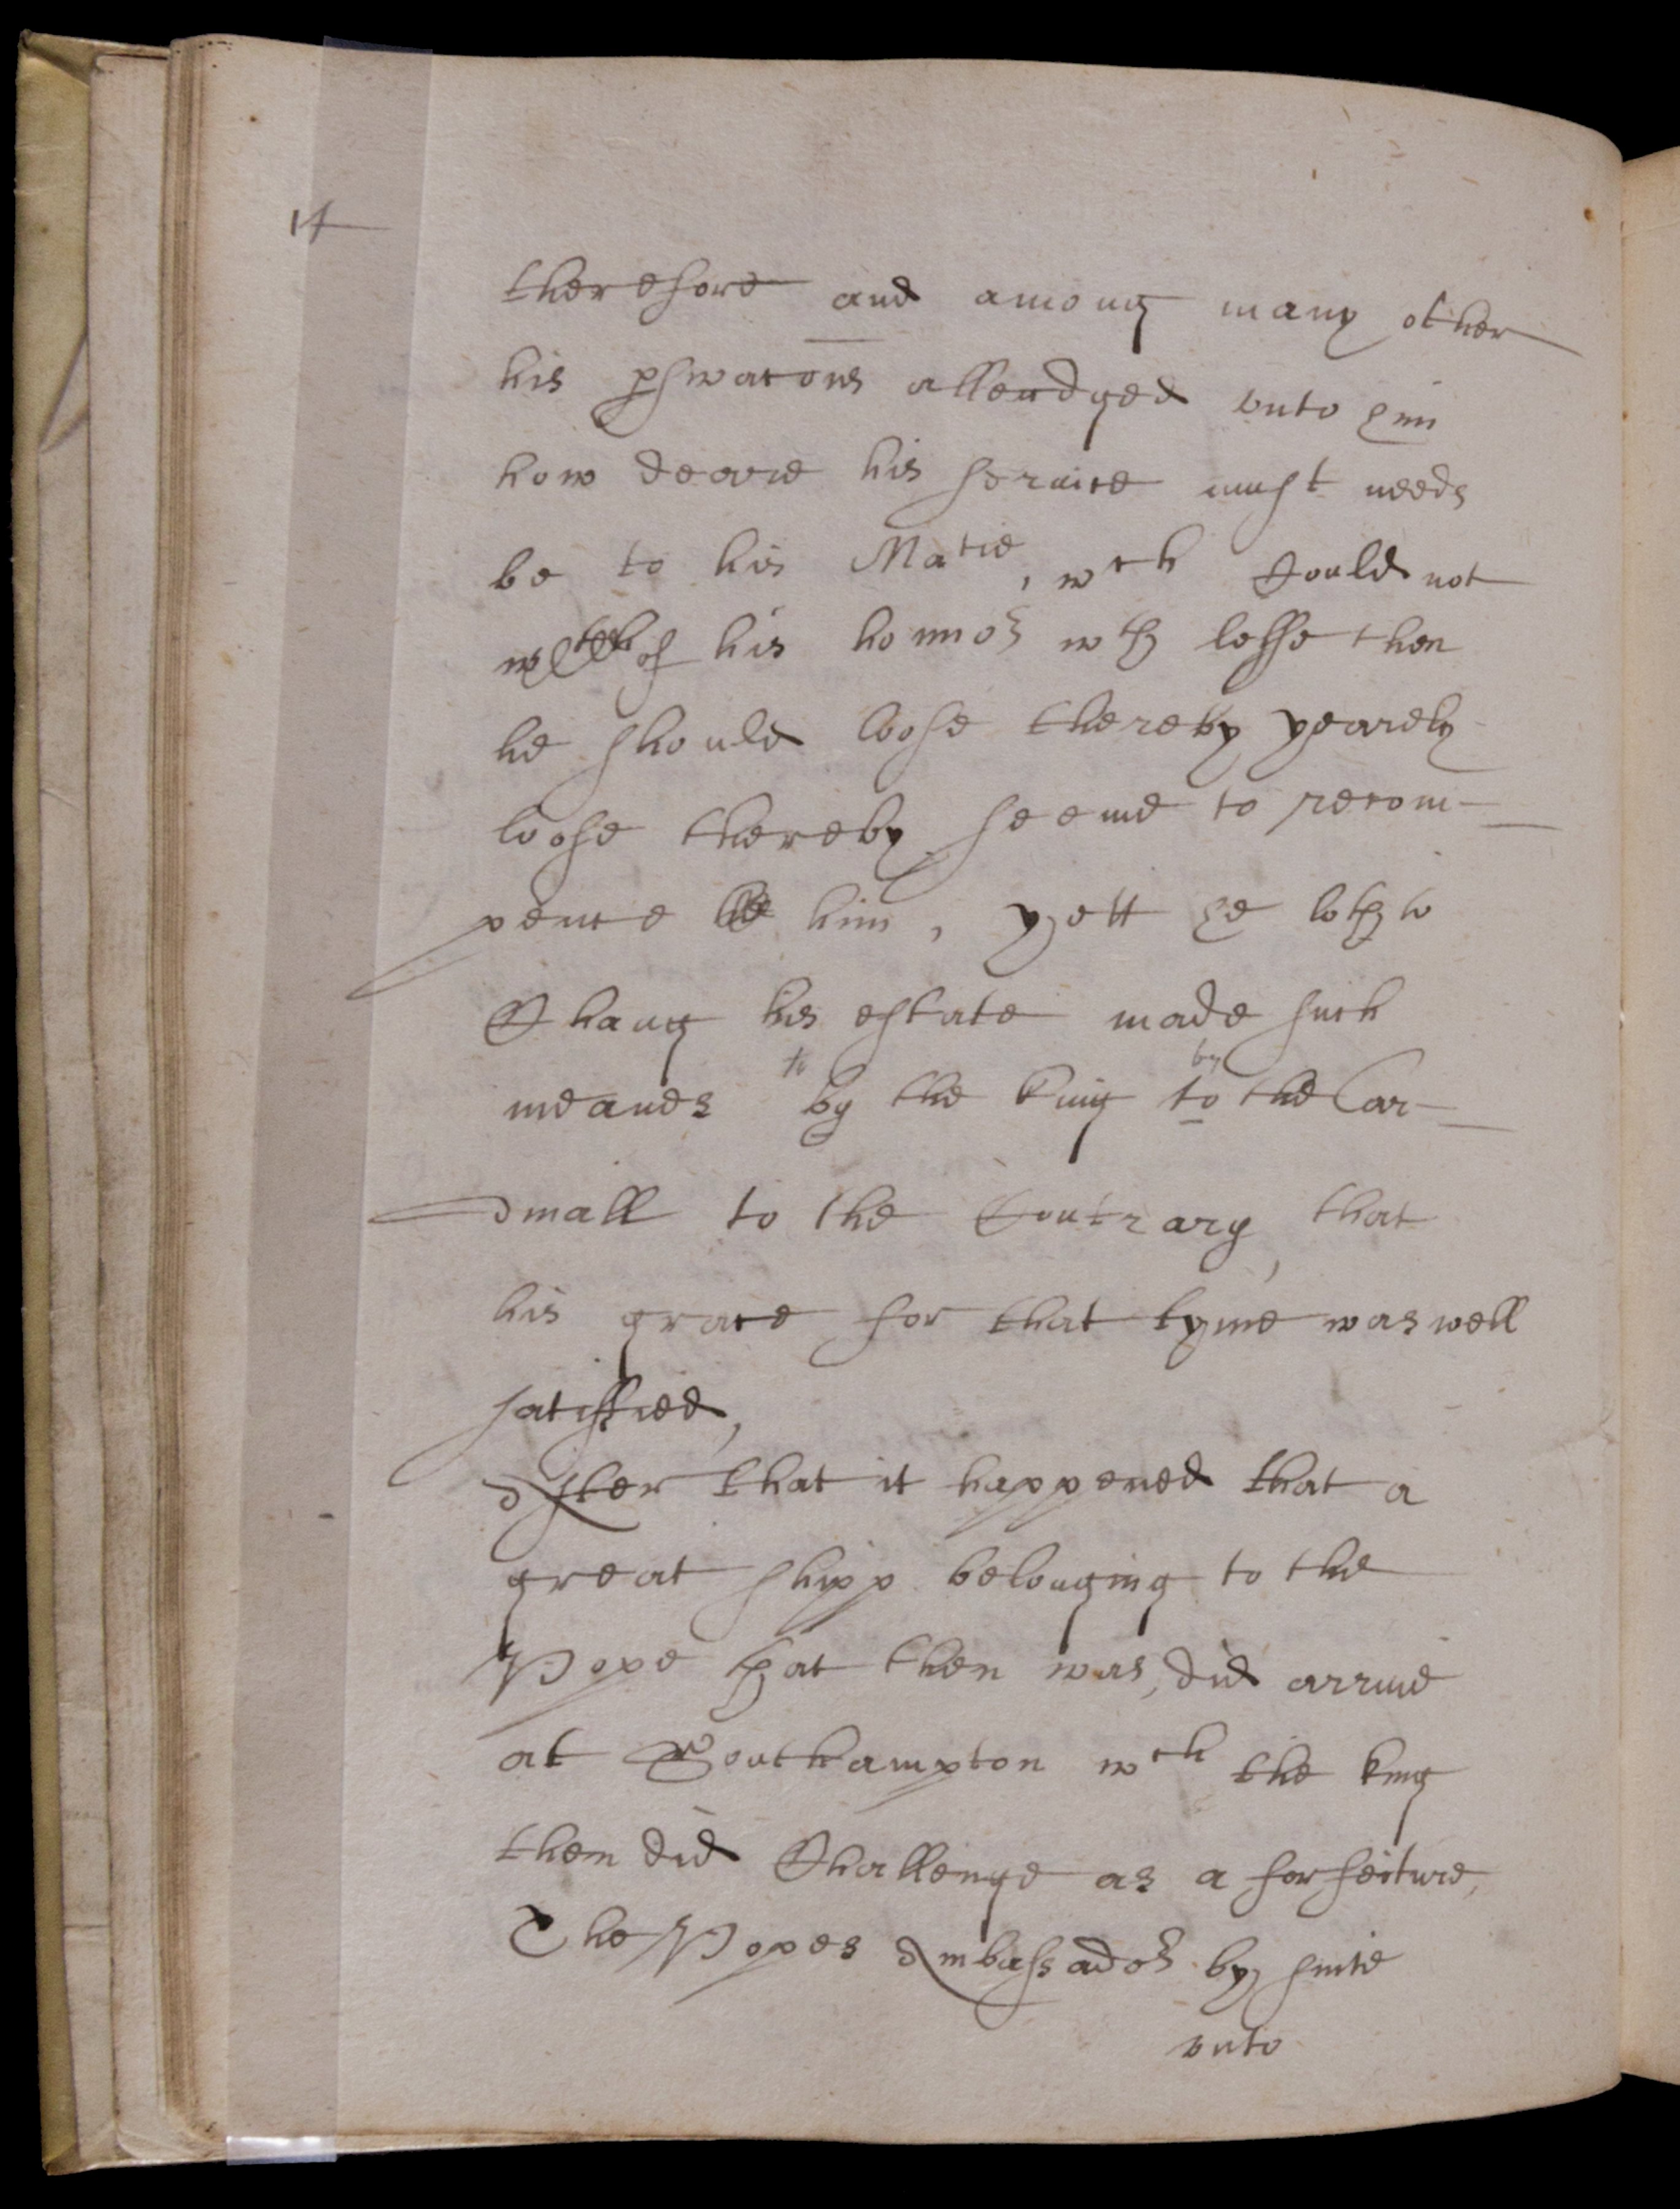 14
therefore and among many other
his pswacons alleadged vnto him
how deare his seruice must needs
be to his Matie, wch Could not
of his honnor wth lesse then
he should loose thereby yearely
loose thereby seeme to recom-
pence him, yett he loth to
Chang his estate made such
meanes to by the king by to the Car-
dinall to the Contrary, that
his grace for that tyme was well
satisfied,
After that it happened that a
great shipp belonging to the
Pope that then was, did arriue
at Southampton wch the king
then did Challenge as a forfeiture,
The Popes Ambassador by suite
vnto